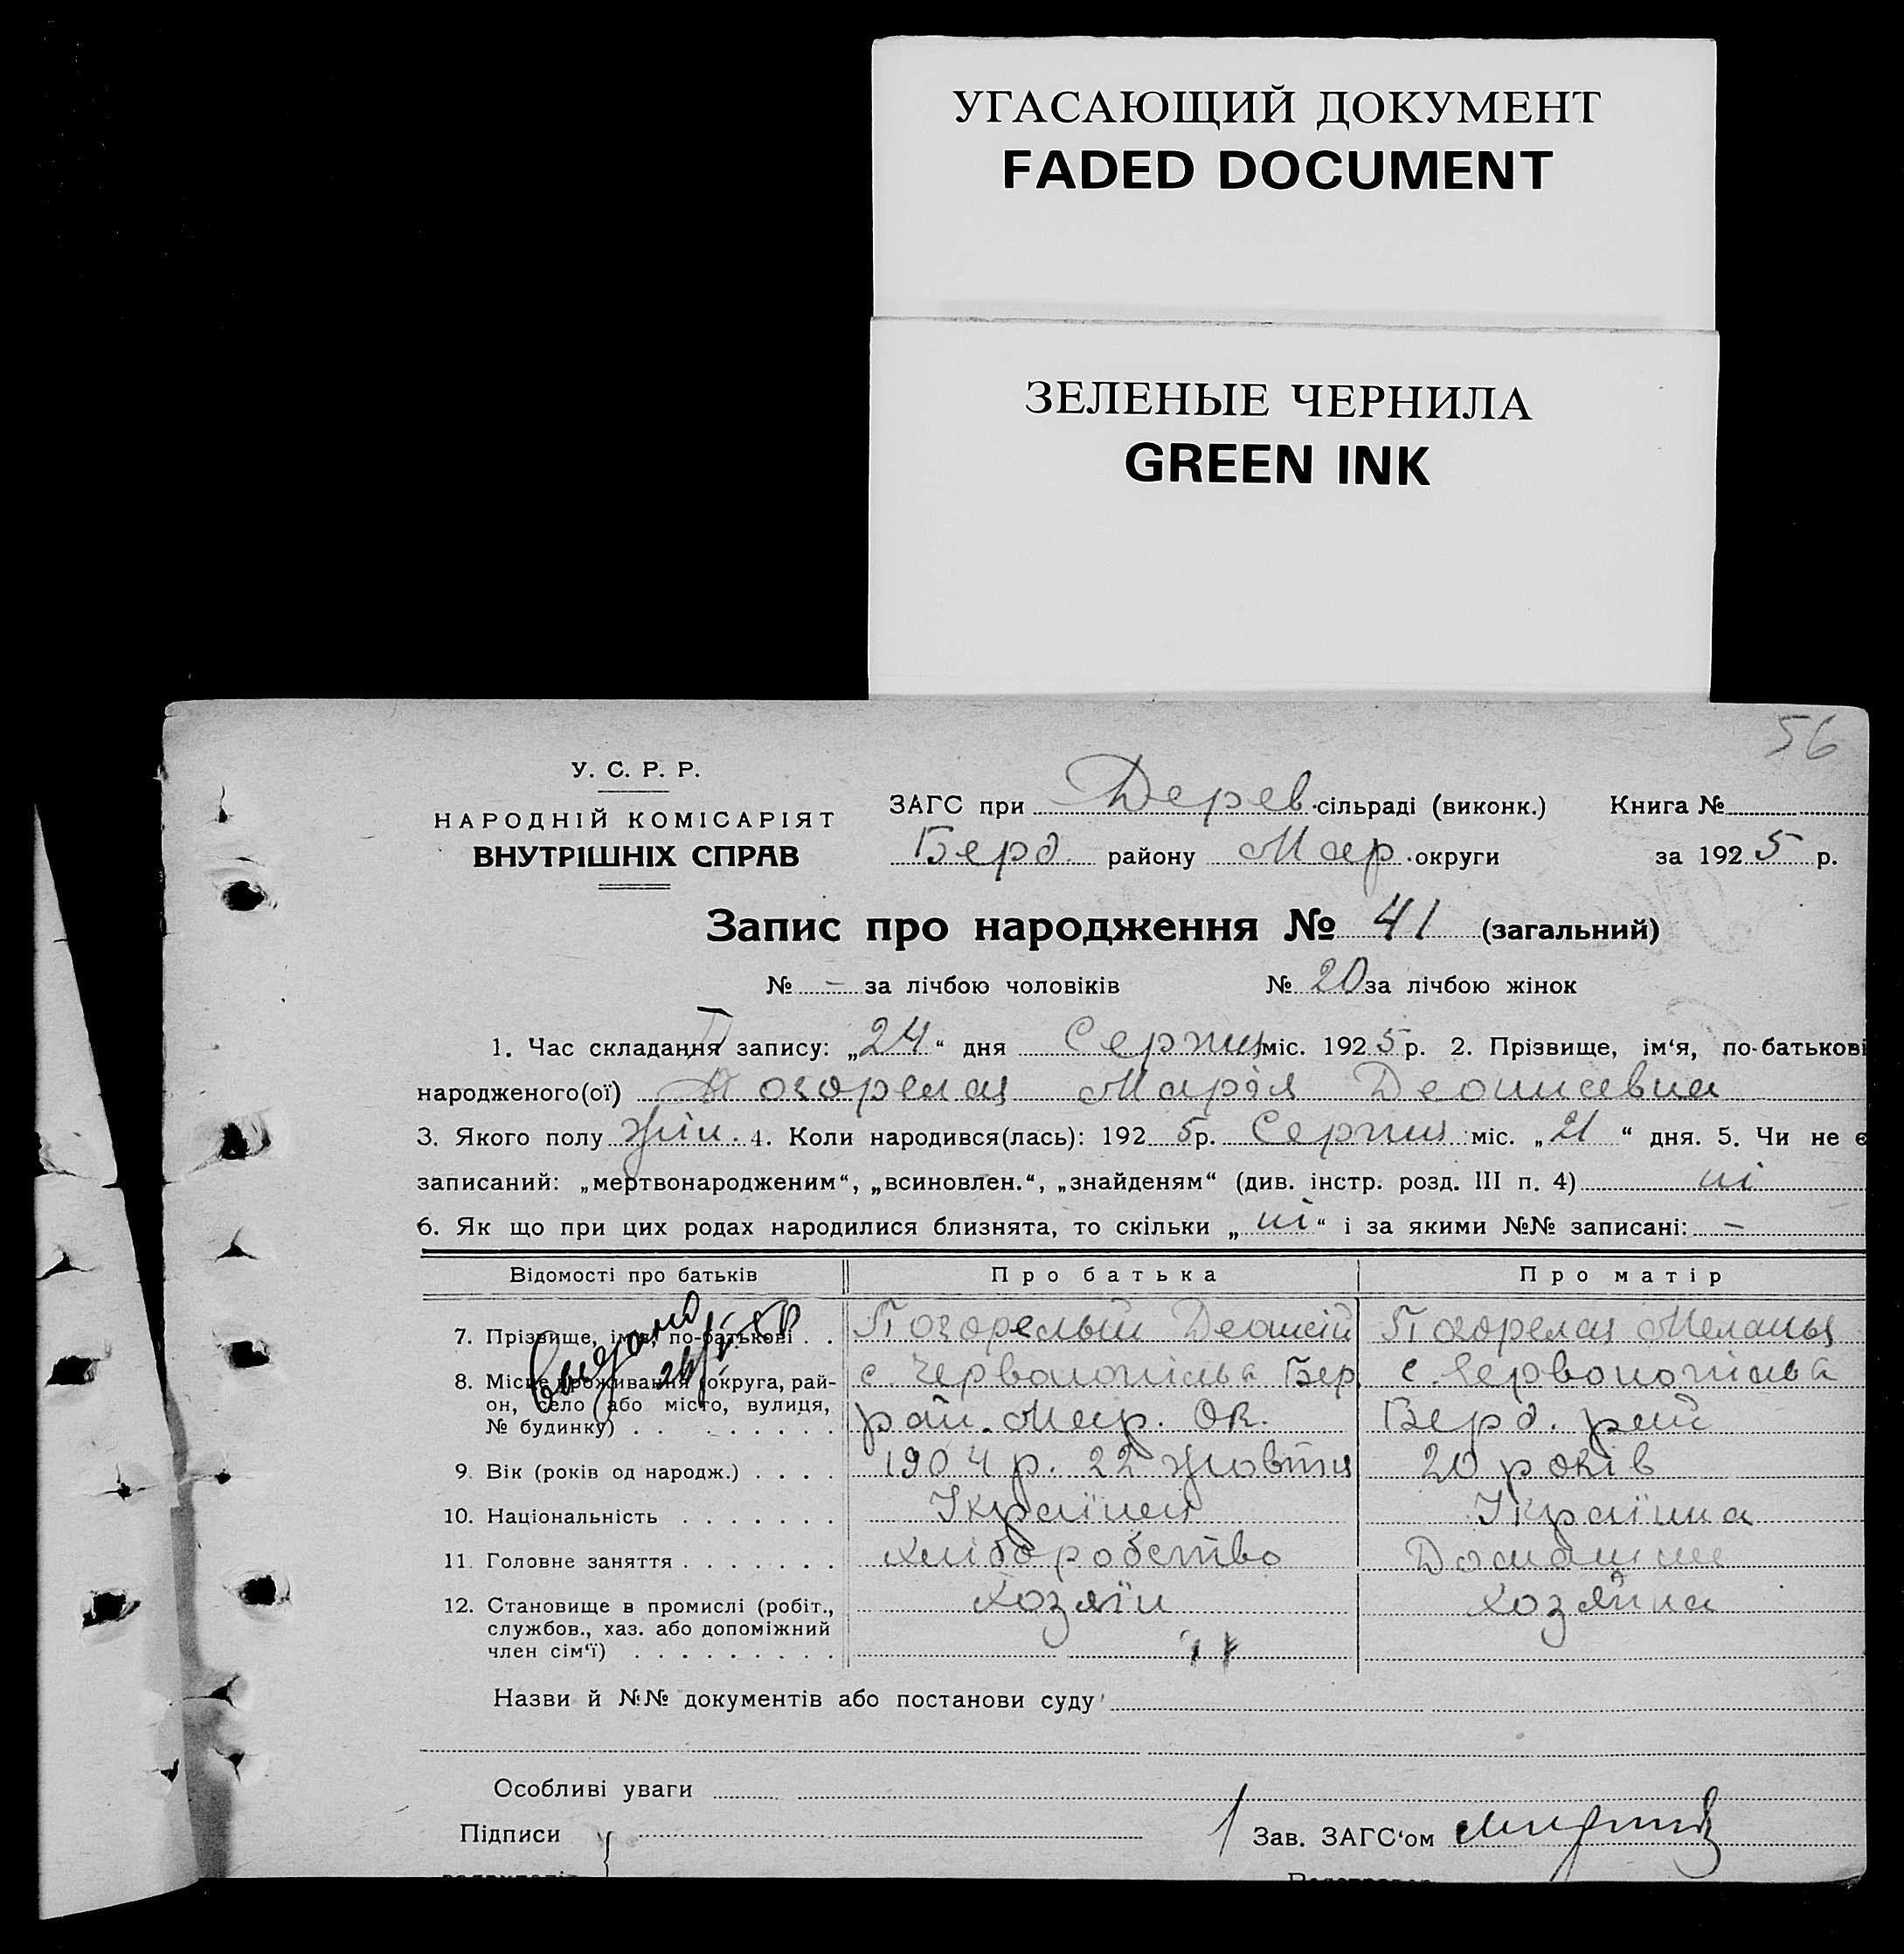 УГАСАЮЩИЙ ДОКУМЕНТ
FADED DOCUMENT
ЗЕЛЕНЫЕ ЧЕРНИЛА
GREEN INK
56
У. С. Р. Р.
НАРОДНІЙ КОМІСАРІЯТ
ВНУТРІШНІХ СПРАВ
ЗАГС при Дерев. сільраді (виконк.) Книга №
Берд. району Мар. округи за 1925 р.
Запис про народження № 41 (загальний)
№ – за лічбою чоловіків № 20 за лічбою жінок
1. Час складання запису: „24“ дня Серпня міс. 1925 р. 2. Прізвище, ім‘я, по-батькові
народженого(ої) Погорелая Марія
3. Якого полу жін. 4. Коли народився(лась): 1925 р. Серпня міс. „21“ дня. 5. Чи не є
записаний: „мертвонародженим“, „всиновлен.“, „знайденям“ (див. інстр. розд. III п. 4) ні
6. Як що при цих родах народилися близнята, то скільки „ні“ і за якими №№ записані: –
Відомості про батьків Про батька Про матір
7. Прізвище, ім‘я, по-батькові . . Погорелый Погорелая Меланья
8. Місце проживання (округа, рай- с. Червонопілька Бер. с. Червонопілька
он, село або місто, вулиця, рай. Мар. Ок. Берд. рай
№ будинку) . . . . . . . .
9. Вік (років од народж.) . . . . 1904 р. 22 жовтня 20 років
10. Національність . . . . . . . Українец Українка
11. Головне заняття . . . . . . . хліборобство Домашнє
12. Становище в промислі (робіт., хозяїн хозяйка
службов., хаз. або допоміжний
член сім‘ї) . . . . . . . . .
Назви й №№ документів або постанови суду
Особливі уваги
Підписи Зав. ЗАГС‘ом